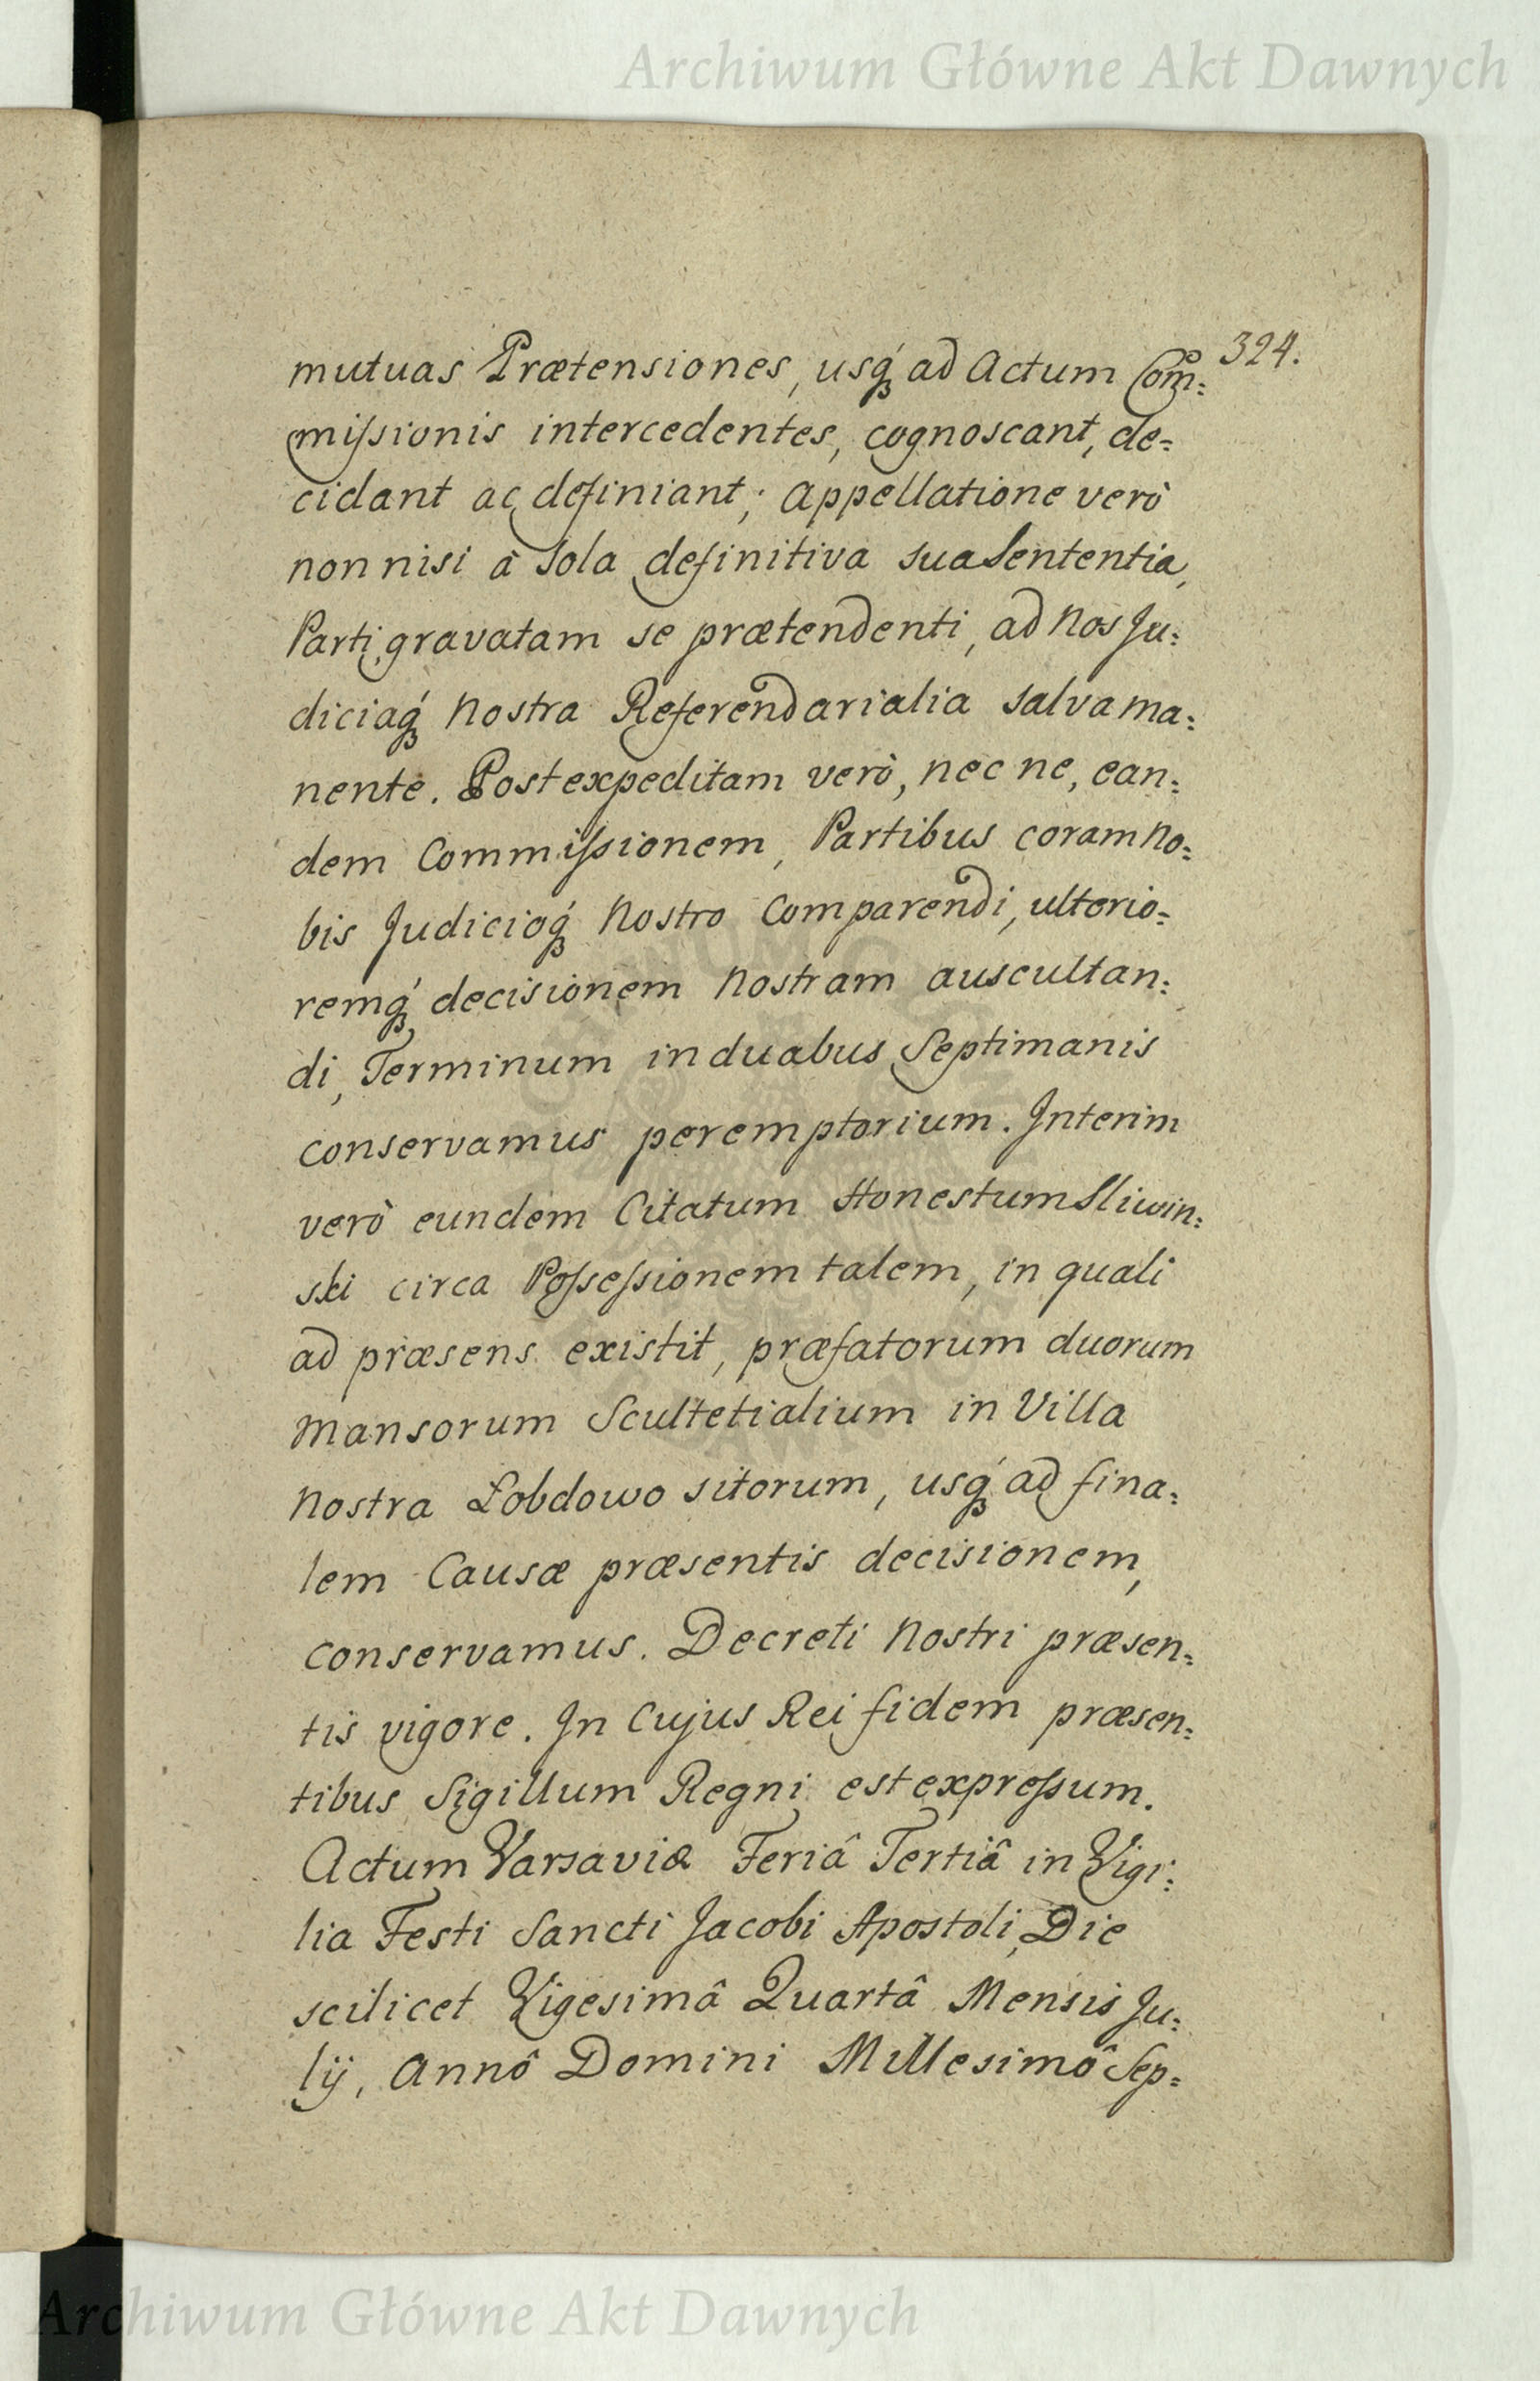 Archiwum Główne Akt Dawnych
324.
mutuas Prætensiones, usq́ ad Actum Com:
miſsionis intercedentes, cognoscant, de=
cidant ac definiant; appellatione verò
non nisi à sola definitiva sua Sententia,
Parti gravatam se prætendenti, ad Nos Ju:
diciaq́ Nostra Referendarialia salva ma:
nente. Post expeditam verò, nec ne, ean:
dem Commiſsionem, Partibus coram No:
bis Judicioq́ Nostro Comparendi, ulterio=
remq́ decisionem Nostram auscultan:
di, Terminum in duabus Septimanis
conservamus peremptorium. Interim
verò eundem Citatum Honestum Sliwin:
ski circa Poſseſsionem talem, in quali
ad præsens existit, præfatorum duorum
Mansorum Scultetialium in Villa
Nostra Łobdowo sitorum, usq́ ad fina:
lem Causæ præsentis decisionem,
conservamus. Decreti Nostri præsen:
tis vigore. In Cujus Rei fidem præsen:
tibus Sigillum Regni est expreſsum.
Actum Varsaviæ Feriâ Tertiâ in Vigi:
lia Festi Sancti Jacobi Apostoli, Die
scilicet Vigesimâ Quartâ Mensis Ju:
lij, Annô Domini Millesimô Sep=
Archiwum Główne Akt Dawnych